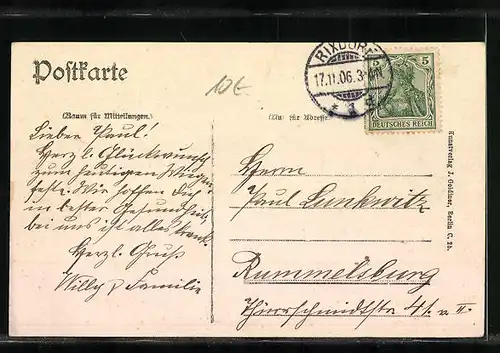 Postkarte
10€
RIXDORF
17.11.06. 3-4N
* 1 g
5
DEUTSCHES REICH
(Raum für Mitteilungen.)
(Nur für Adresse)
Lieber Paul!
Herzl. Glückwunsch
zum heutigen Wiegen
feste. Wir hoffen dich
in bester Gesundheit,
bei uns ist alles krank.
Herzl. Gruß
Willy & Familie
Herrn
Paul Lunkwitz
Rummelsburg
Thürrschmidtstr 41. v II.
Kunstverlag J. Goldiner, Berlin C. 25.